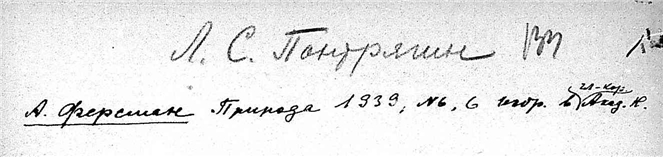 Л. С. Понтрягин
А. Ферсман Природа 1939, №6, 6 избр. в чл-кор. Акад. Н.